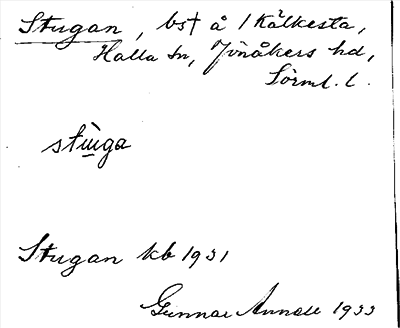 Stugan, bst å 1 Kälkesta,
Halla sn, Jönåkers hd,
Sörml. l.
stùga
Stugan kb 1931
Gunnar 1933